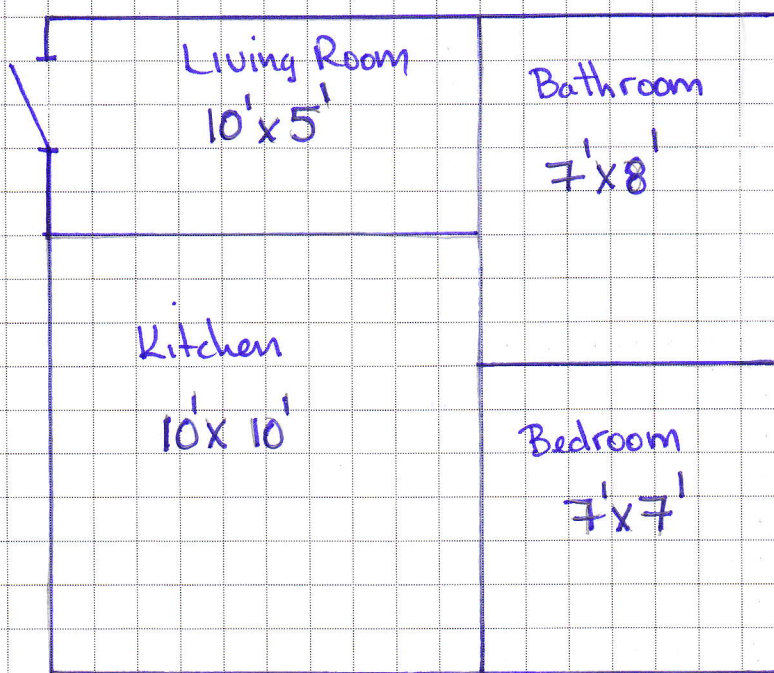 Living Room
10'x5'
Bathroom
7'x8'
Kitchen
10'x 10'
Bedroom
7'x7'